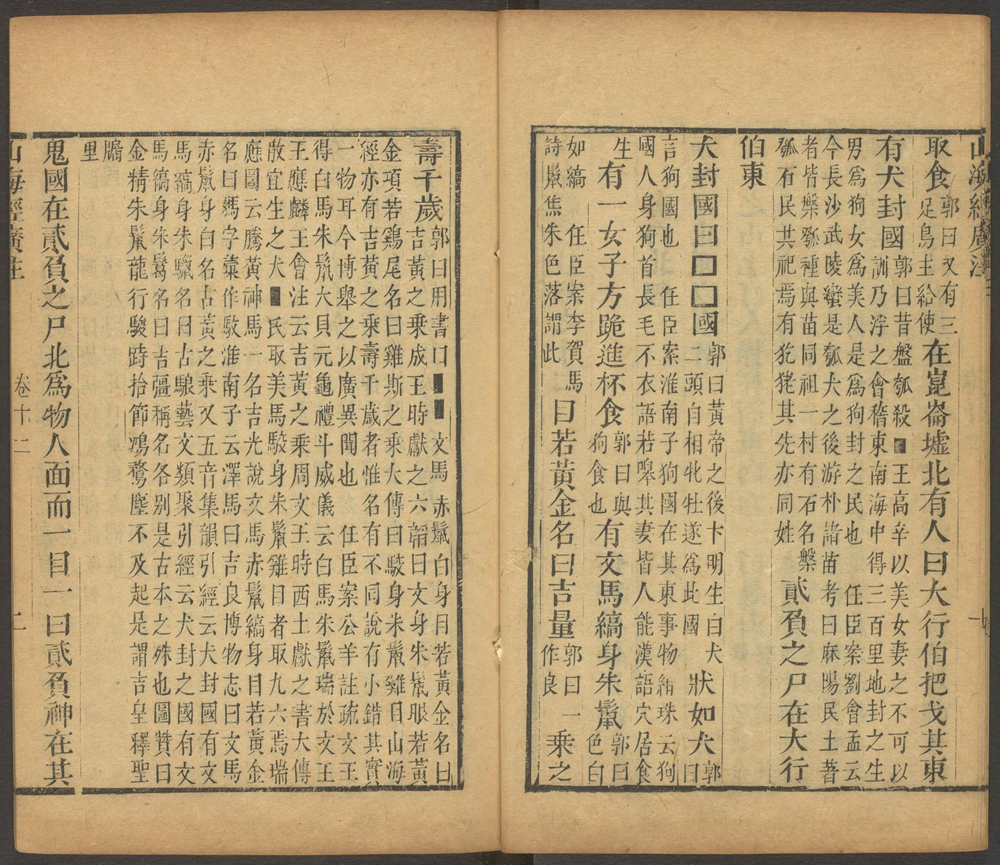 山海經廣注
取食郭曰又有三足鳥主給使在崑崙墟北有人曰大行伯把戈其東
有犬封國郭曰昔盤瓠殺■王高辛以美女妻之不可以訓乃浮之會稽東南海中得三百里地封之生
男為狗女為美人是為狗封之民也 任臣案劉會孟云今長沙武陵蠻是瓠犬之後游朴諸苗考曰麻陽民土著
者皆槃瓠種與苗同祖一村有石名槃瓠石民其祀焉有犵狫其先亦同姓貳負之尸在大行
伯東
犬封國曰□□□國郭曰黃帝之後卞明生白犬二頭自相牝牡遂為此國狀如犬郭曰
言狗國也 任臣案淮南子狗國在其東事物紺珠云狗國人身狗首長毛不衣語若嘷其妻皆人能漢語穴居食
生有一女子方跪進杯食郭曰與狗食也有文馬縞身朱鬣郭曰色白
如縞 任臣案李賀馬詩鬣焦朱色落謂此曰若黃金名曰吉量郭曰作良一乘之
壽千歲郭曰周書曰■■文馬赤鬣白身目若黃金名曰吉黃之乘成王時獻之六韜曰文身朱鬣眼若黃
金項若雞尾名曰雞斯之乘大傳曰駮身朱鬣雞目山海經亦有吉黃之乘壽千歲者惟名有不同說有小錯其實
一物耳今博舉之以廣異聞也 任臣案公羊註疏文王得白馬朱鬣大貝元龜禮斗威儀云白馬朱鬣瑞於文王
王應麟王會注云吉黃之乘周文王時西土獻之書大傳散宜生之犬■氏取美馬駮身朱鬣雞目者取九六焉瑞
應圖云騰黃神馬一名吉光說文馬赤鬣縞身目若黃金名曰䮨字彙作駇淮南子云澤馬曰吉良博物志曰文馬
赤鬣身白名古黃之乘又五音集韻引經云犬封國有文馬縞身朱鬣名曰古騴藝文類聚引經云犬封之國有文
馬縞身朱鬣名曰吉彊稱名各別是古本之殊也圖贊曰金精朱鬣龍行駮跱拾節鴻鶩塵不及起是謂吉皇釋聖
牖里
鬼國在貳負之尸北為物人面而一目一曰貳負神在其
山海經廣注
卷十二
二